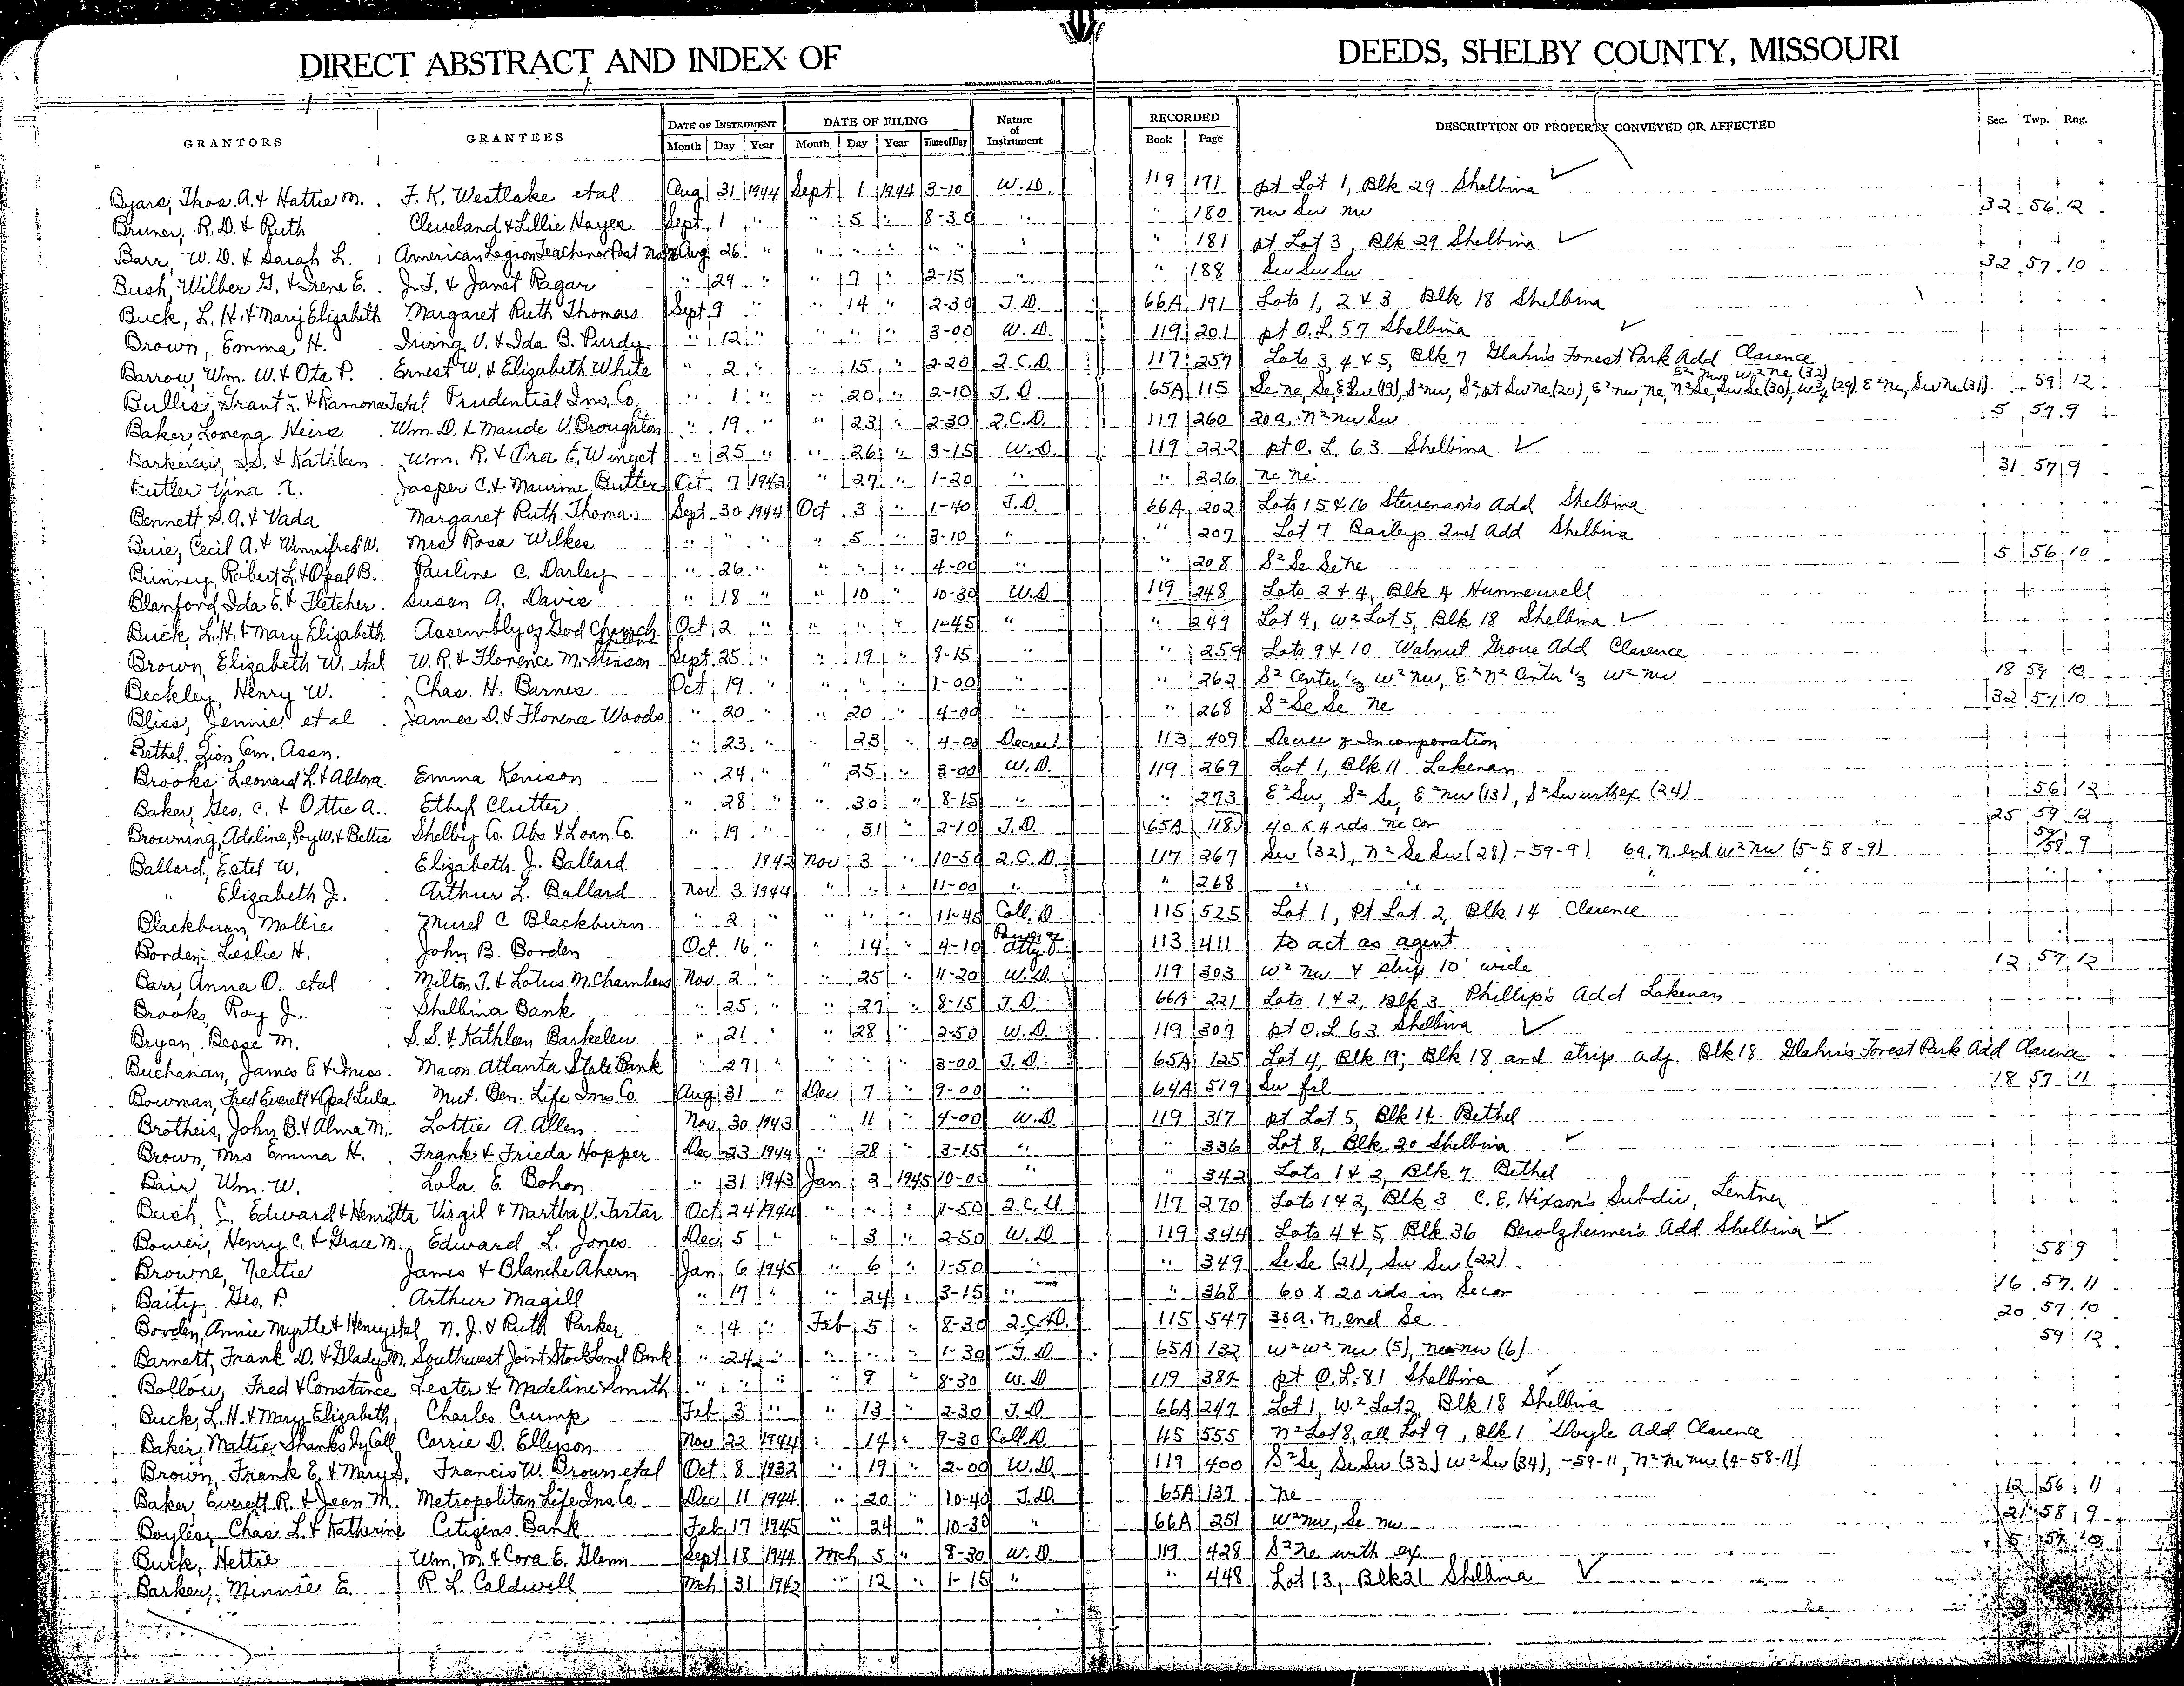 DIRECT ABSTRACT AND INDEX OF DEEDS, SHELBY COUNTY, MISSOURI
GRANTORS GRANTEES DATE OF INSTRUMENT DATE OF FILING Nature of Instrument RECORDED DESCRIPTION OF PROPERTY CONVEYED OR AFFECTED Sec. Twp. Rng.
Month Day Year Month Day Year Time of Day Book Page
Byars, Thos. A. & Hattie M. F. K. Westlake etal Aug 31 1944 Sept 1 1944 3-10 W.D. 119 171 pt Lot 1, Blk 29 Shelbina ✓
Bruner, R. D. & Ruth Cleveland & Lillie Hayes Sept 1 " " 5 " 8-30 " " 180 nw Sw nw 32 56 12
Barr, W. D. & Sarah L. American Legion Post Aug 26 " " " " " " " " 181 pt Lot 3, Blk 29 Shelbina ✓
Bush, Wilber G. & Irene E. J. T. & Janet Ragar " 29 " " 7 " 2-15 " " 188 Sw Sw Sw 32 57 10
Buck, L. H. & Mary Elizabeth Margaret Ruth Thomas Sept 9 " " 14 " 2-30 T.D. 66A 191 Lots 1, 2 & 3 Blk 18 Shelbina
Brown, Emma H. Irving V. & Ida B. Purdy " 12 " " " " 3-00 W.D. 119 201 pt O.L. 57 Shelbina ✓
Barrow, Wm. W. & Ota P. Ernest W. & Elizabeth White " 2 " " 15 " 2-20 Q.C.D. 117 257 Lots 3, 4 & 5, Blk 7 Glahn's Forest Park Add Clarence
E² nw, w² ne (32)
Bullis, Grant & Ramona etal Prudential Ins. Co. " 1 " " 20 " 2-10 T.D. 65A 115 Se ne, Se, E² Sw (19), S² nw, S² pt Sw ne (20), E² nw, ne, n² Se, Sw Se (30), (29) E² ne, Sw ne (31) 59 12
Baker, Lorena Heirs Wm. D. & Maude V. Broughton " 19 " " 23 " 2-30 Q.C.D. 117 260 20a. n² nw Sw 5 57 9
S.S. & Kathleen Wm. R. & Ora E. Winget " 25 " " 26 " 3-15 W.D. 119 222 pt O. L. 63 Shelbina ✓
Butler, Gina A. Jasper C. & Maurine Butler Oct 7 1943 " 27 " 1-20 " " 226 ne ne 31 57 9
Bennett, S. A. & Vada Margaret Ruth Thomas Sept 30 1944 Oct 3 " 1-40 T.D. 66A 202 Lots 15 & 16 Stevenson's Add Shelbina
Buie, Cecil A. & Winnifred W. Mrs Rosa Wilkes " " " " 5 " 3-10 " " 207 Lot 7 Baileys 2nd Add Shelbina
Binney, Robert L. & Opal B. Pauline C. Darley " 26 " " " " 4-00 " " 208 S² Se Se ne 5 56 10
Blanford, Ida E. & Fletcher Susan A. Davis " 18 " " 10 " 10-30 W.D 119 248 Lots 2 & 4, Blk 4 Hunnewell
Buck, L. H. & Mary Elizabeth Assembly of God Church Shelbina Oct 2 " " " " 1-45 " " 249 Lot 4, W² Lot 5, Blk 18 Shelbina ✓
Brown, Elizabeth W. etal W. R. & Florence M. Stinson Sept 25 " " 19 " 8-15 " " 259 Lots 9 & 10 Walnut Grove Add Clarence
Beckley, Henry W. Chas. H. Barnes Oct 19 " " " " 1-00 " " 262 S² Center ⅓ w² nw, E² n² Center ⅓ w² nw 18 59 10
Bliss, Jennie etal James D. & Florence Woods " 20 " " 20 " 4-00 " " 268 S² Se Se ne 32 57 10
Bethel Zion Cem. Assn. " 23 " " 23 " 4-00 Decree 113 409 Decree of Incorporation
Brooks, Leonard L. & Aldora Emma Kenison " 24 " " 25 " 3-00 W.D. 119 269 Lot 1, Blk 11 Lakenan
Baker, Geo. C. & Ottie A. Ethyl Clutter " 28 " " 30 " 8-15 " " 273 E² Sw, S² Se, E² nw (13), S² Sw urth ex (24) 56 12
Browning, Adeline, Roy W. & Bettie Shelby Co. Abs & Loan Co. " 19 " " 31 " 2-10 T.D. 65A 118 40 x 4 rds ne cor 25 59 12
Ballard, Estel W. Elizabeth J. Ballard 1942 Nov 3 " 10-50 Q.C.D. 117 267 Sw (32), n² Se Sw (28) -59-9) 6a. n. end w² nw (5-58-9) 59 58 9
" Elizabeth J. Arthur L. Ballard Nov 3 1944 " " " 11-00 " " 268 " " "
Blackburn, Mollie Murel C Blackburn " 2 " " " " 11-45 Coll. D. 115 525 Lot 1, Pt Lot 2, Blk 14 Clarence
Borden, Leslie H. John B. Borden Oct 16 " " 14 " 4-10 Power of Atty 113 411 to act as agent
Barr, Anna O. etal Milton T. & Lotus M. Chambers Nov 2 " " 25 " 11-20 W.D. 119 303 w² nw & strip 10' wide 12 57 12
Brooks, Roy J. Shelbina Bank " 25 " " 27 " 8-15 T.D. 66A 221 Lots 1 & 2, Blk 3 Phillip's Add Lakenan
Bryan, Besse M. S. S. & Kathleen Barkelew " 21 " " 28 " 2-50 W.D. 119 307 pt O.L 63 Shelbina ✓
Buchanan, James E & Iness Macon Atlanta State Bank " 27 " " " " 3-00 T.D. 65A 125 Lot 4, Blk 19; Blk 18 and strip adj. Blk 18 Glahn's Forest Park Add Clarence
Bowman, Fred Everett & Opal Lula Mut. Ben. Life Ins. Co. Aug 31 " Dec 7 " 9-00 " 64A 519 Sw frl 18 57 11
Brothers, John B. & Alma M. Lottie A. Allen Nov 30 1943 " 11 " 4-00 W.D. 119 317 pt Lot 5, Blk 14 Bethel
Brown, Mrs Emma H. Frank & Frieda Hopper Dec 23 1944 " 28 " 3-15 " " 336 Lot 8, Blk 20 Shelbina ✓
Bair, Wm. W. Lola E. Bohon " 31 1943 Jan 2 1945 10-00 " " 342 Lots 1 & 2, Blk 7 Bethel
Bush, C. Edward & Henrietta Virgil & Martha V. Tartar Oct 24 1944 " " " 1-50 Q.C.D. 117 270 Lots 1 & 2, Blk 3 C. E. Hixson's Subdiv, Lentner
Bower, Henry C. & Grace M. Edward L. Jones Dec 5 " " 3 " 2-50 W.D 119 344 Lots 4 & 5, Blk 36 Berolzheimer's Add Shelbina ✓
Browne, Nettie James & Blanche Ahern Jan 6 1945 " 6 " 1-50 " " 349 Se Se (21), Sw Sw (22) 58 9
Baity, Geo. P. Arthur Magill " 17 " " 24 " 3-15 " " 368 60 x 20 rds in Se cor 16 57 11
Borden, Annie Myrtle & Henry etal N. J. & Ruth Parker " 4 " Feb 5 " 8-30 Q.C.D. 115 547 30a. n. end Se 20 57 10
Barnett, Frank D. & Gladys M. Southwest Joint Stock Land Bank " 24 " " " " 1-30 T.D 65A 132 w² w² nw (5), nw (6) 59 12
Bollow, Fred & Constance Lester & Madeline Smith " " " " 9 " 8-30 W.D 119 384 pt O.L. 81 Shelbina ✓
Buck, L. H. & Mary Elizabeth Charles Crump Feb 3 " " 13 " 2-30 T.D. 66A 247 Lot 1, W² Lot 2, Blk 18 Shelbina
Baker, Mattie Shanks by Coll Carrie D. Ellyson Nov 22 1944 " 14 " 9-30 Coll.D. 115 555 n² Lot 8, all Lot 9, Blk 1 Doyle Add Clarence
Brown, Frank E. & Mary S. Francis W. Brown etal Oct 8 1932 " 19 " 2-00 W.D. 119 400 S² Se, Se Sw (33) w² Sw (34), -59-11, n² ne nw (4-58-11)
Baker, Everett R. & Jean M. Metropolitan Life Ins. Co. Dec 11 1944 " 20 " 10-40 T.D. 65A 137 ne 12 56 11
Boyles, Chas. L. & Katherine Citizens Bank Feb 17 1945 " 24 " 10-30 " 66A 251 w² nw, Se nw 21 58 9
Buck, Hettie Wm. M. & Cora E. Glenn Sept 18 1944 Mch 5 " 8-30 W.D. 119 428 S² ne with ex 5 57 10
Barker, Minnie E. R. L. Caldwell Mch 31 1942 " 12 " 1-15 " " 448 Lot 13, Blk 21 Shelbina ✓